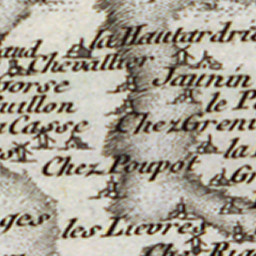 la Hautardrie
aud
Chevallier
Jaunin
orse
uillon
le P
Casse
Chez Greni
la
Chez Poupot
Gr
ges
les Lievres
Che Rig